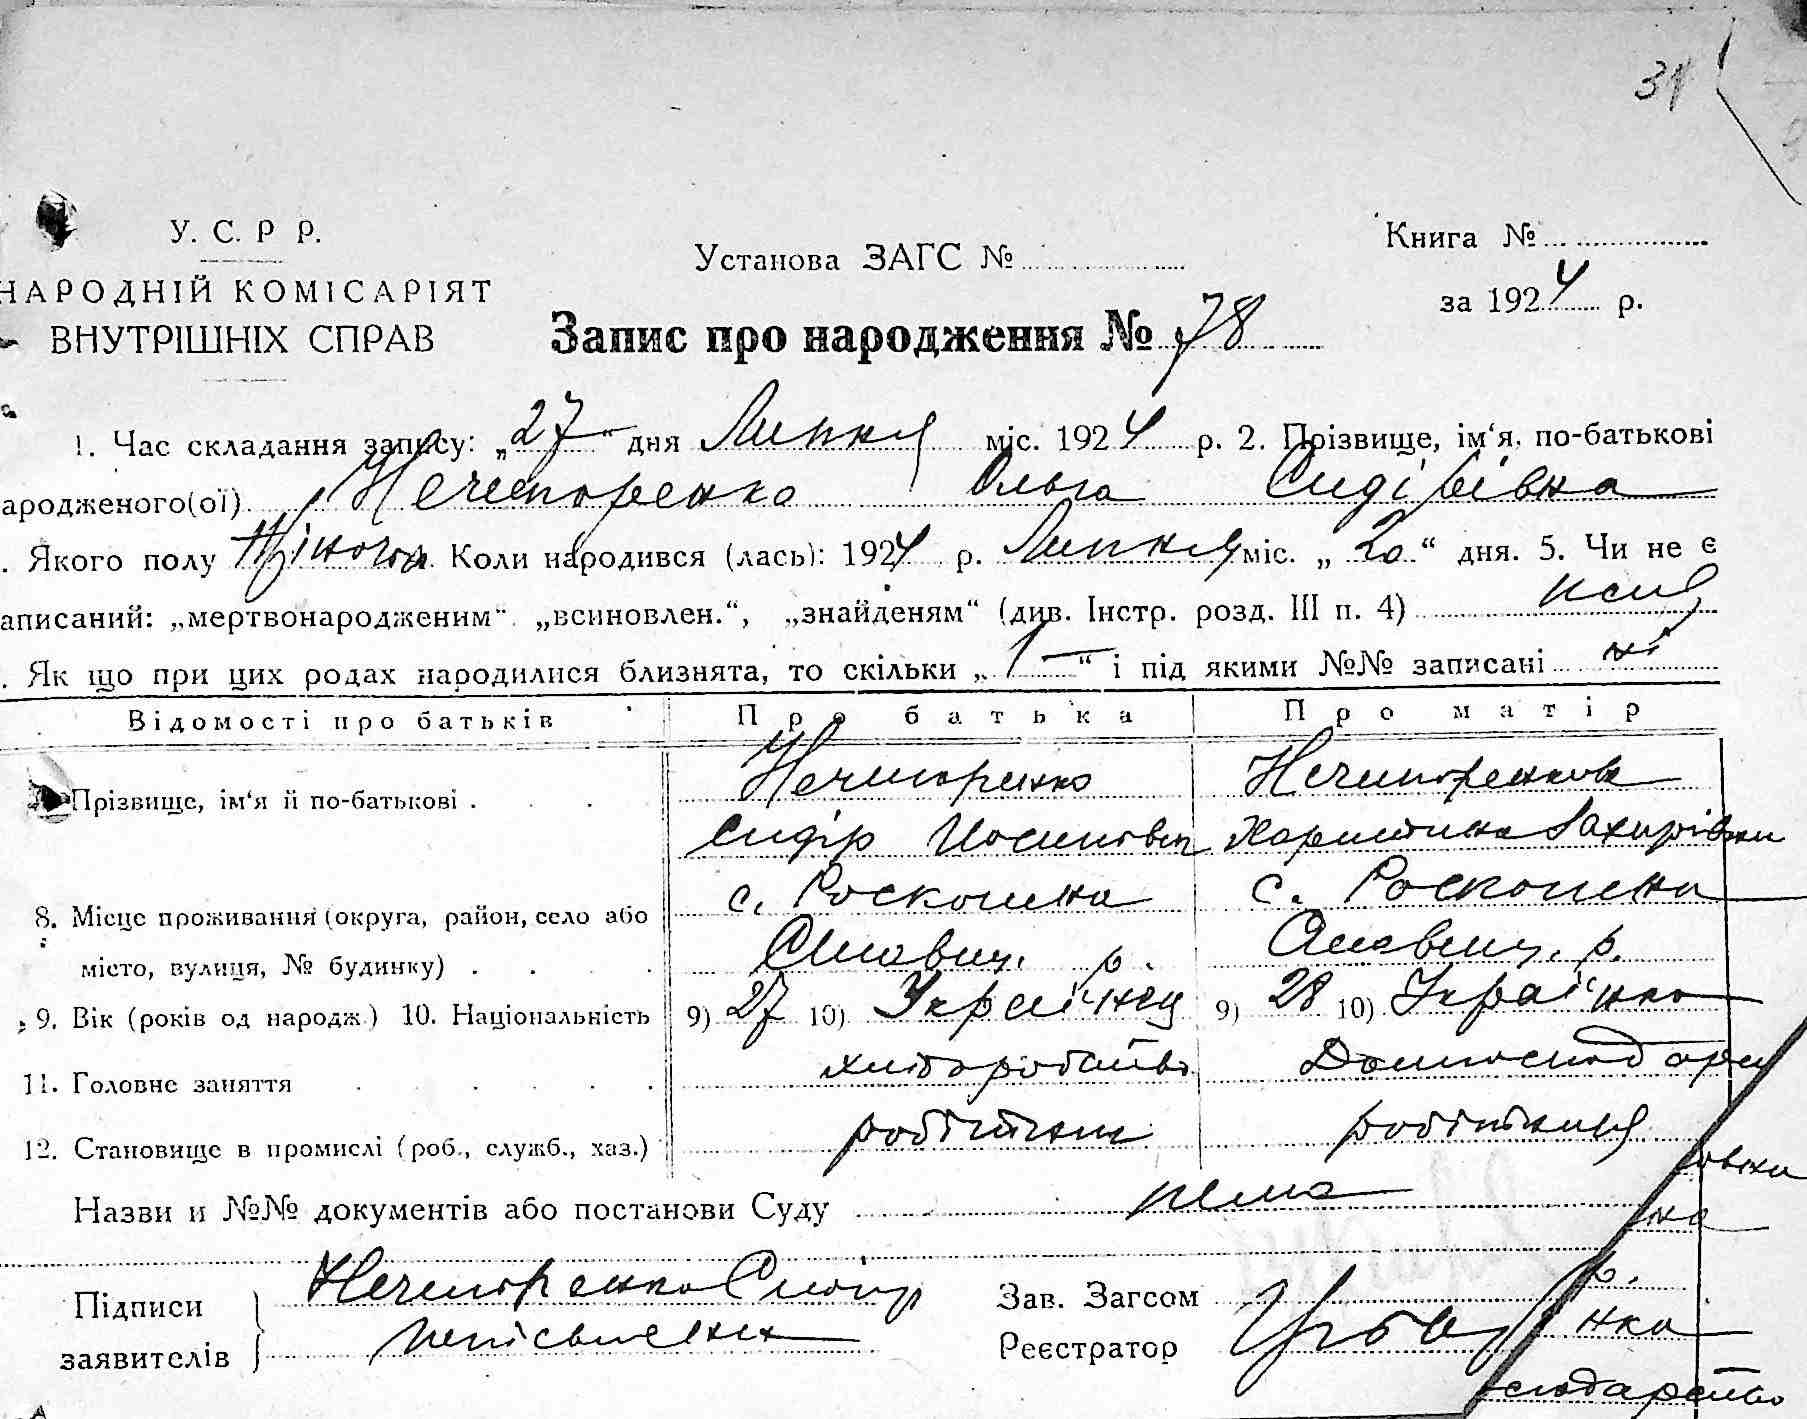 31
У. С. Р Р.
НАРОДНІЙ КОМІСАРІЯТ
ВНУТРІШНІХ СПРАВ
Установа ЗАГС №
Книга №
за 1924 р.
Запис про народження № 78
1. Час складання запису: „27“ дня Липня міс. 1924 р. 2. Прізвище, ім‘я, по-батькові
ародженого(ої) Нечипоренко Ольга Сидірівна
. Якого полу Жіночоа Коли народився (лась): 1924 р. Липня міс. „20“ дня. 5. Чи не є
аписаний: „мертвонародженим“ „всиновлен.“, „знайденям“ (див. Інстр. розд. III п. 4)
. Як що при цих родах народилися близнята, то скільки „1“ і під якими №№ записані ні
Відомості про батьків Про батька Про матір
Прізвище, ім‘я й по-батькові . Нечипоренко Нечипоренкова
Сидір Иосипович Харитина Захарівна
8. Місце проживання (округа, район, село або с. Роскошна с. Роскошна
місто, вулиця, № будинку) . р. р.
9. Вік (років од народж.) 10. Національність 9) 27 10) Українец 9) 28 10) Українка
11. Головне заняття хліборобство
12. Становище в промислі (роб., служб., хаз.) робітник робітниця
овна
Назви и №№ документів або постанови Суду нема
на
р.
Підписи Нечипоренко Сидір Зав. Загсом
заявителів неписьменни Реєстратор
нка
сподарство